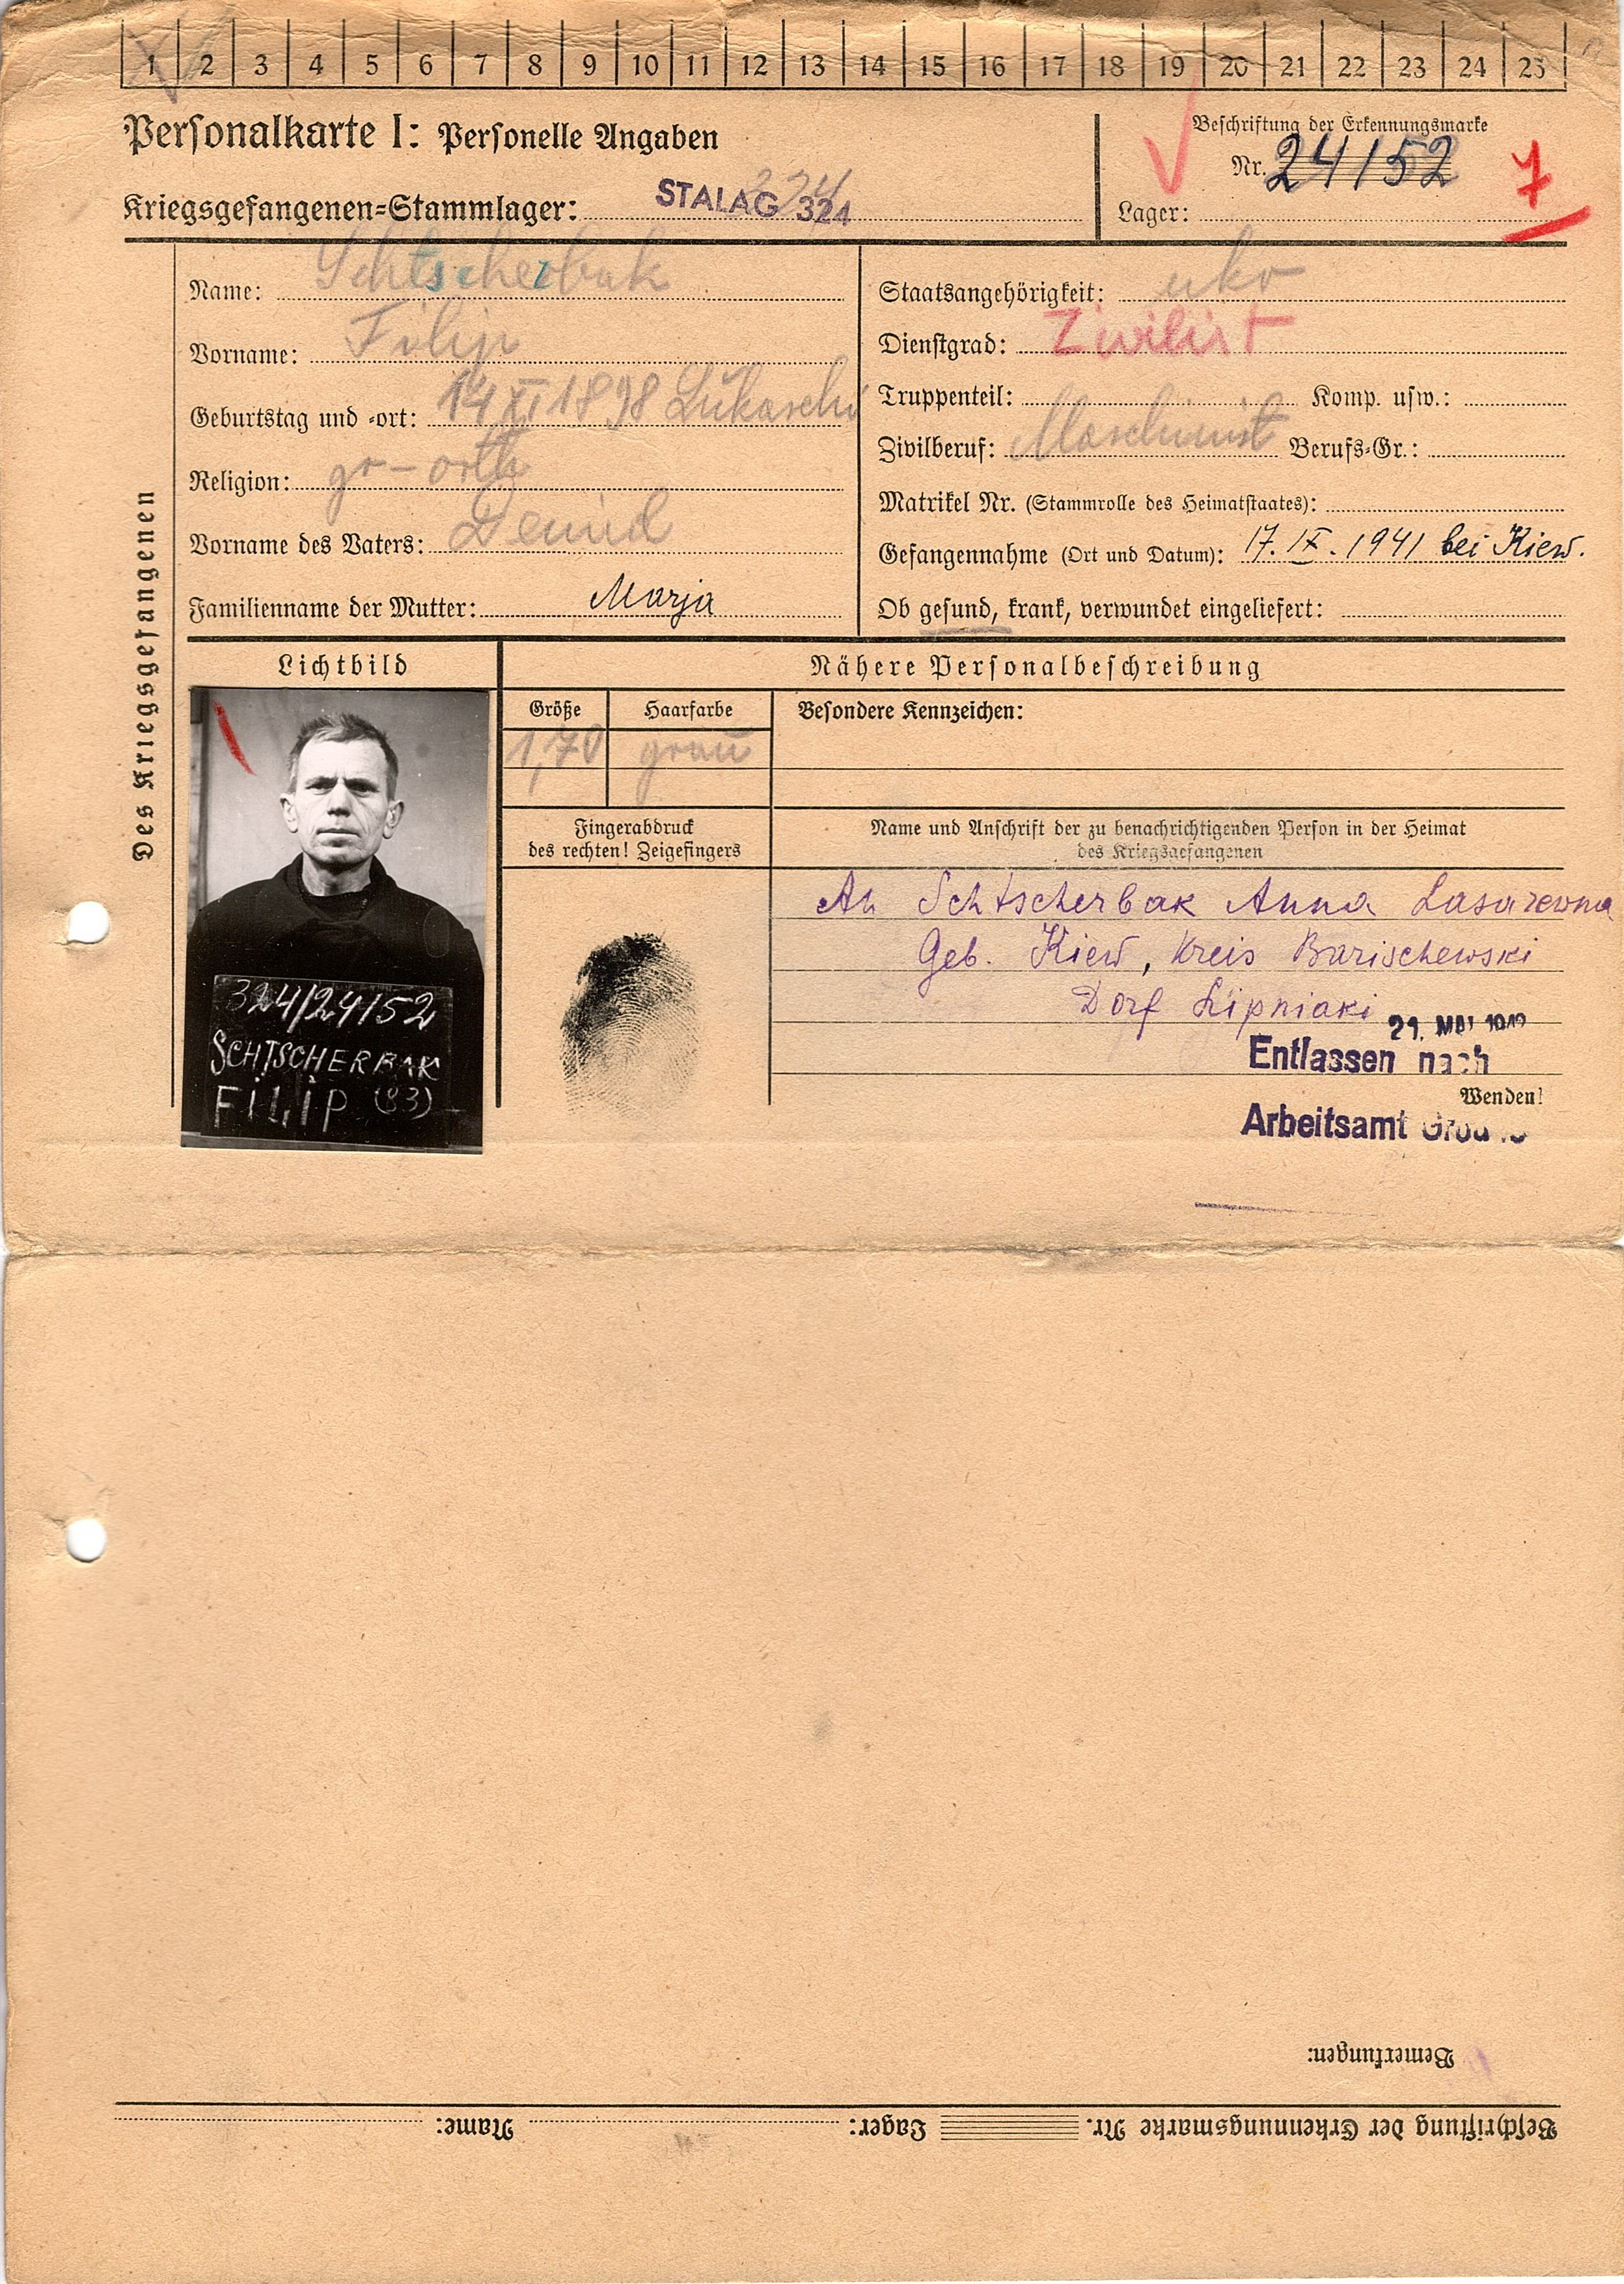 1 2 3 4 5 6 7 8 9 10 11 12 13 14 15 16 17 18 19 20 21 22 23 24 25
Personalkarte I: Personelle Angaben
Beschriftung der Erkennungsmarke
Nr. 24152
7
Kriegsgefangenen-Stammlager: STALAG 324
Lager:
Des Kriegsgefangenen
Name: Schtscherbak
Vorname: Filip
Geburtstag und -ort: 14 XI 1898 Lukaschi
Religion: gr-orth
Vorname des Vaters: Demid
Familienname der Mutter: Marja
Staatsangehörigkeit: ukr
Dienstgrad: Zivilist
Truppenteil: Komp. usw.:
Zivilberuf: Maschinist Berufs-Gr.:
Matrikel Nr. (Stammrolle des Heimatstaates):
Gefangennahme (Ort und Datum): 17. IX. 1941 bei Kiew.
Ob gesund, krank, verwundet eingeliefert:
Lichtbild
Nähere Personalbeschreibung
Größe Haarfarbe Besondere Kennzeichen:
1,70 grau
Fingerabdruck
des rechten! Zeigefingers
Name und Anschrift der zu benachrichtigenden Person in der Heimat
des Kriegsgefangenen
An Schtscherbak Anna Lasarewna
Geb. Kiew, Kreis Barischewski
Dorf Lipniaki
324/24152
SCHTSCHERBAK
FILIP (83)
21. MAI
Entlassen nach
Wenden!
Arbeitsamt
Bemerkungen:
Beschriftung der Erkennungsmarke Nr. Lager: Name: